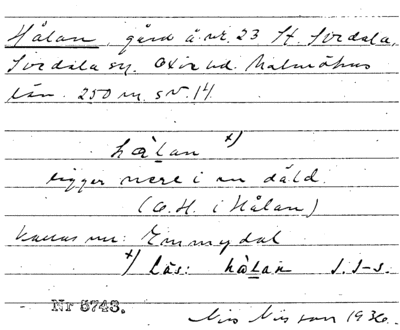 Hålan, gård å nr. 23 St. Svedala,
Svedala sn. Oxie hd. Malmöhus
län. 250 m. s v. 14.
hålan x)
ligger nere i en däld.
(O. H. i Hålan)
kallas nu: Emmydal
x) Läs: hålan J. S-s.
Nr 5743.
Nils Nilsson 1936.